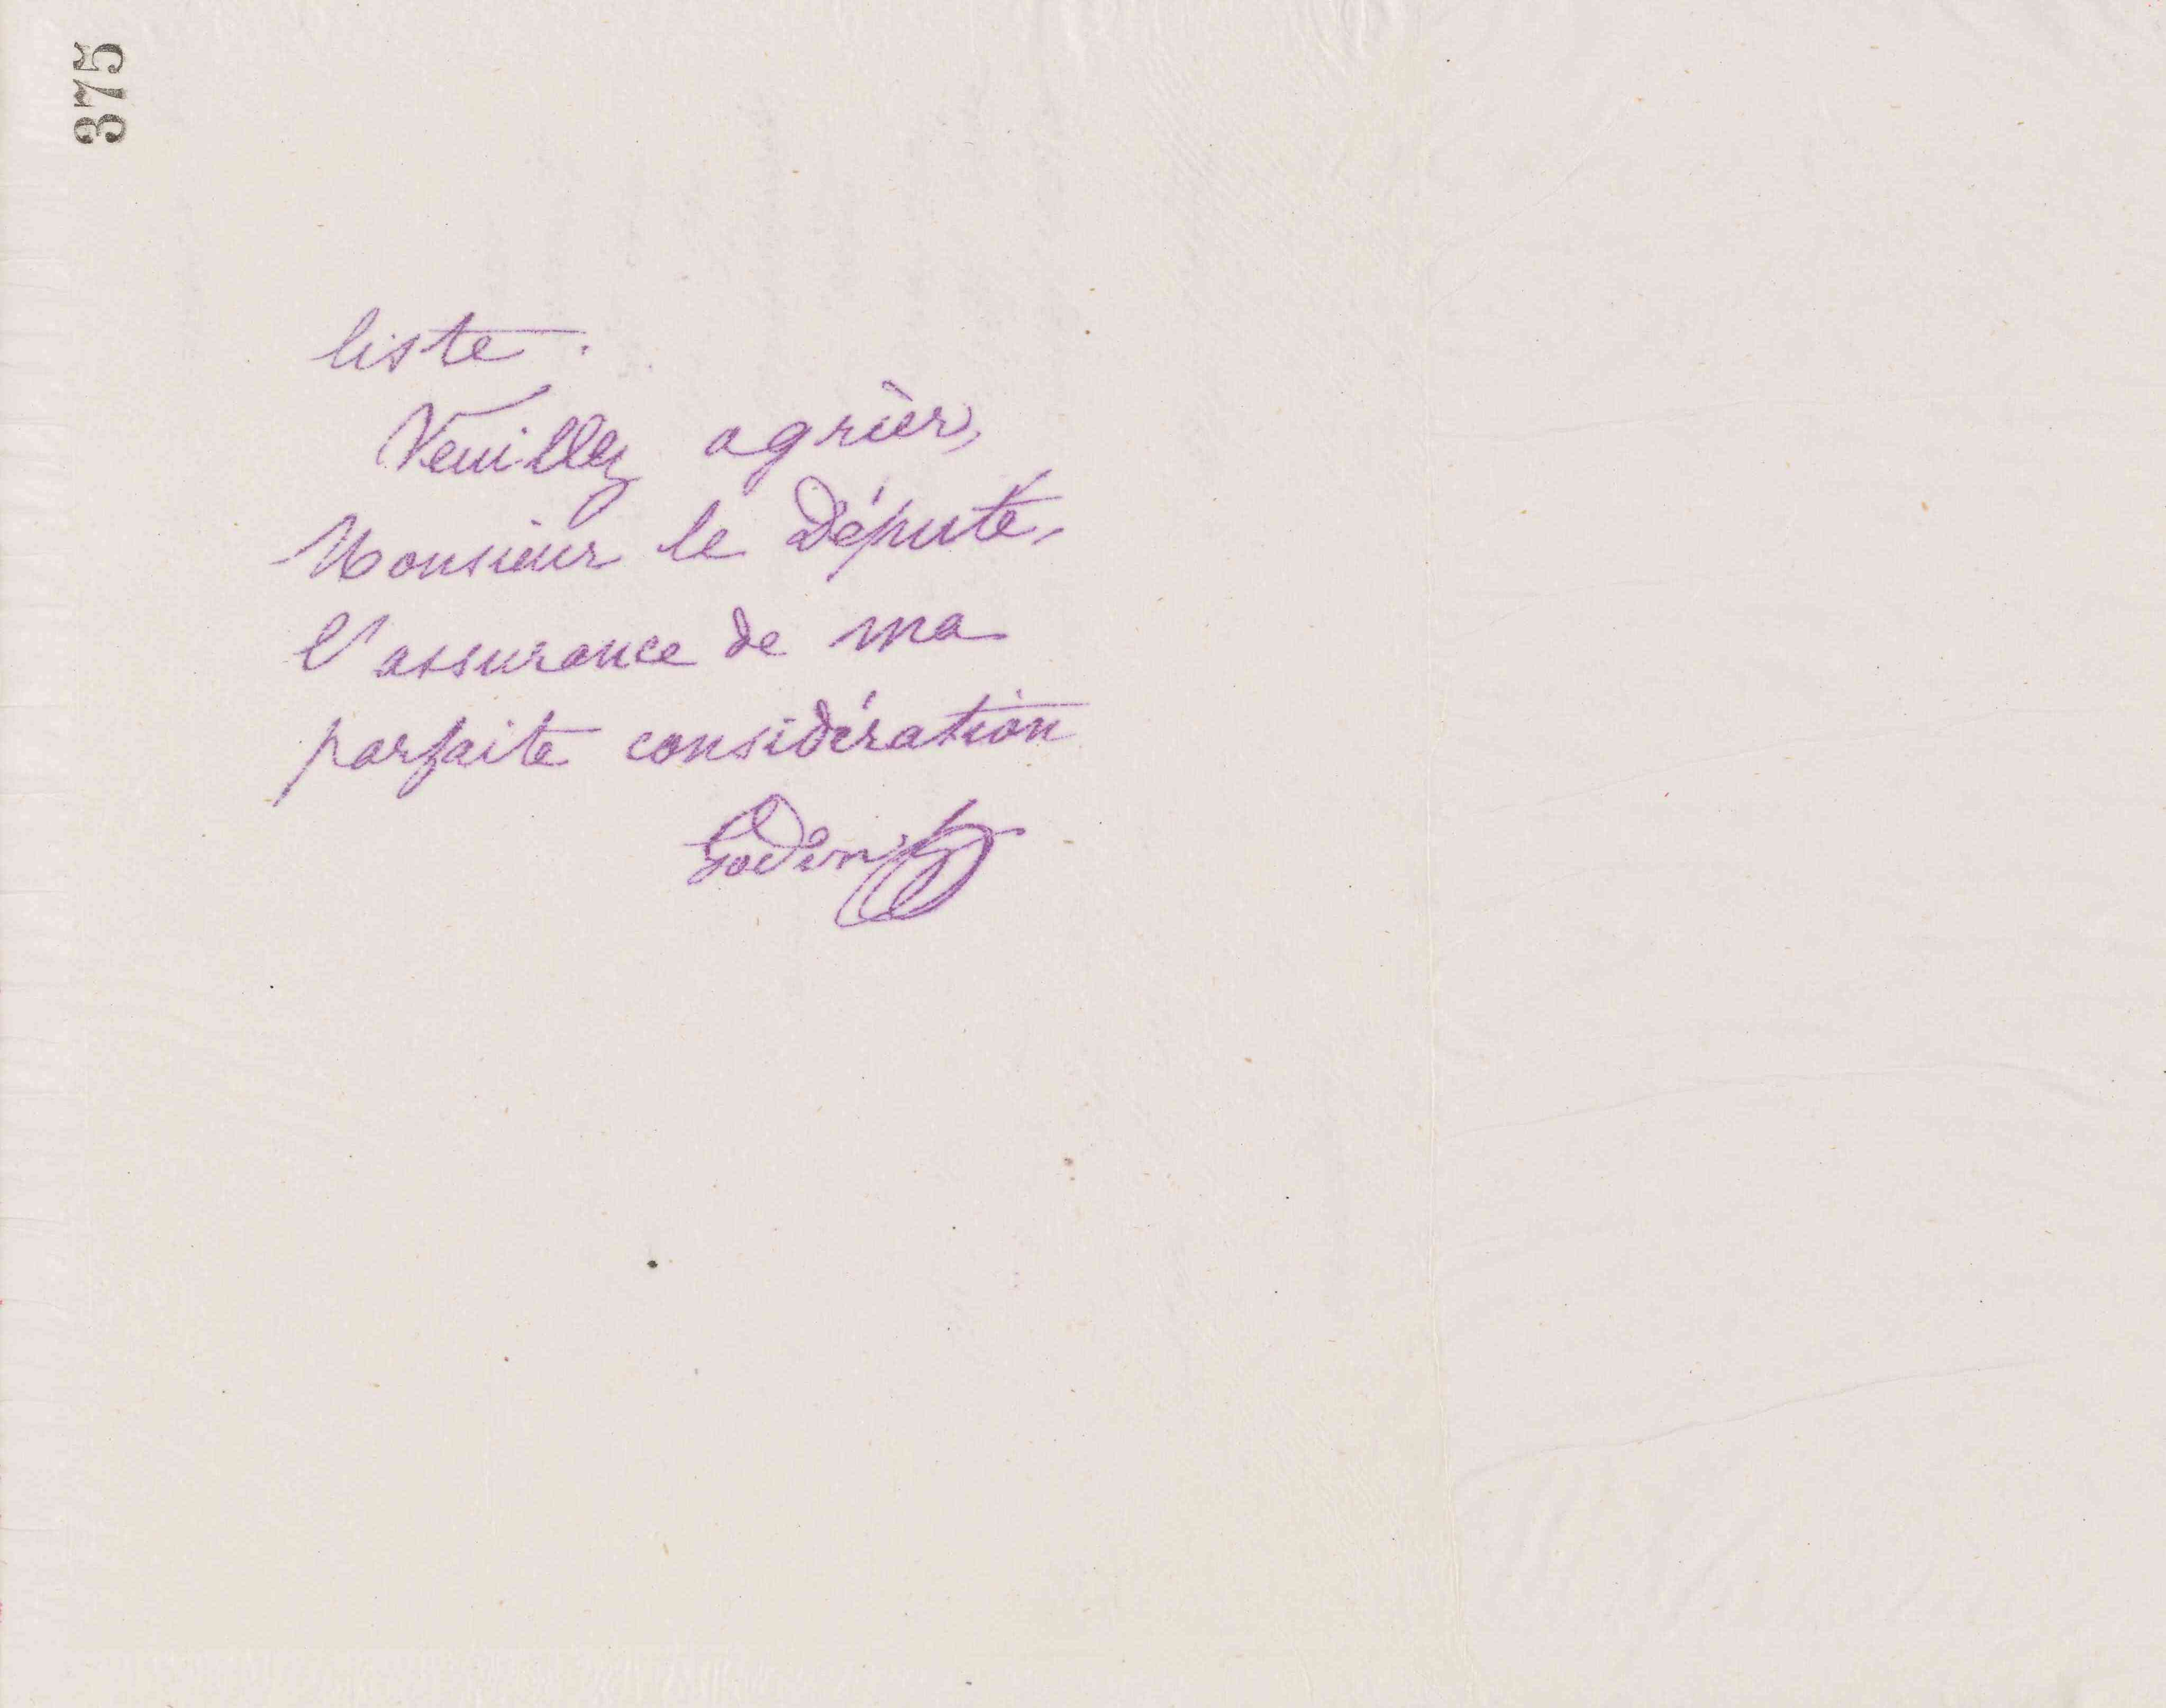 375
liste.
Veuillez agréer,
Monsieur le Député,
l'assurance de ma
parfaite considération
Godin